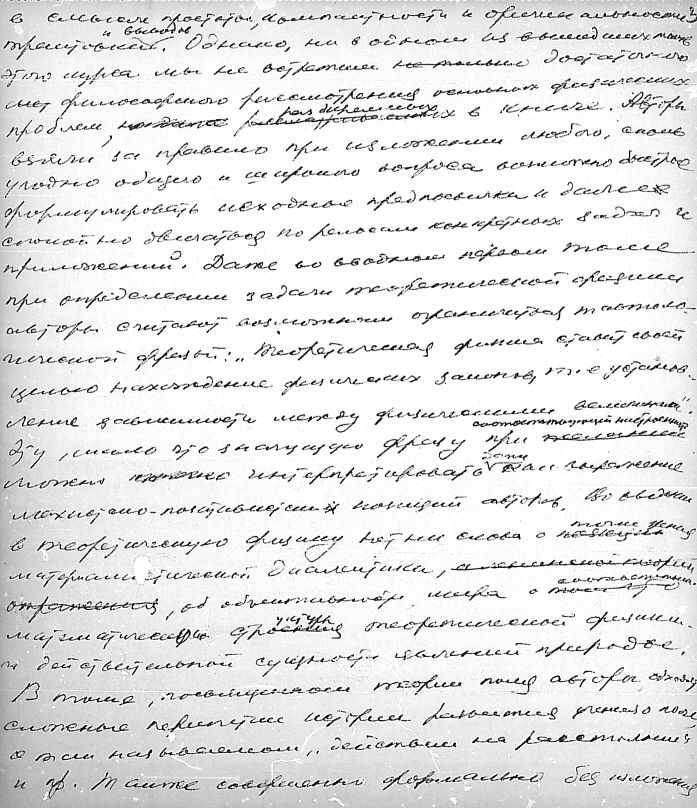 в смысле простоты, компактности и оригинальности
трактовки и выводов. Однако, ни в одном из вышедших томов
этого курса мы не встретим достаточно
философского рассмотрения основных физических
проблем, разбираемых в книге. Авторы
взяли за правило при изложении любого, сколь
угодно общего и широкого вопроса возможно быстрее
формулировать исходные предпосылки и далее
спокойно двигаться по рельсам конкретных задач и
приложений. Даже во вводном первом томе
при определении задачи теоретической физики
авторы считают возможным ограничиться тавтоло-
гической фразой: „Теоретическая физика ставит своей
целью нахождение физических законов, т.е. установ-
ление зависимости между физическими величинами"
Эту, мало что значущую фразу при соответствующей настроенности
можно интерпретировать даже как выражение
махистско-позитивистских позиций авторов. Во введении
в теоретическую физику нет ни слова о точке зрения
материалистической диалектики, а ленинской теории
отражения, об объективности мира о соответствии
математической структуры теоретической физики
и действительной сущности явлений природы.
В томе, посвященном теории поля авторы обходят
сложные перипетии истории развития учения о поле,
о так называемом „действии на расстоянии"
и др. Также совершенно формально без изложения